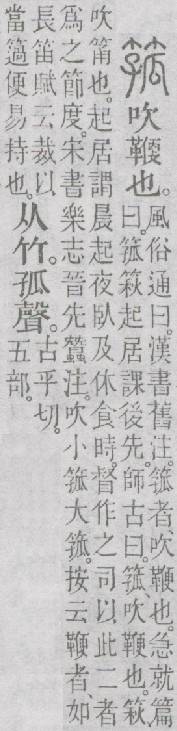 箛吹鞭也。
風俗通曰。漢書舊注。箛者、吹鞭也。急就篇
曰。箛篍起居課後先。師古曰。箛、吹鞭也。篍、
吹筩也。起居謂晨起夜臥及休食時。督作之司以此二者
爲之節度。宋書樂志晉先蠶注。吹小箛大箛。按云鞭者、如
長笛賦云裁以
當簻便易持也。
从竹。孤聲。
古乎切。
五部。